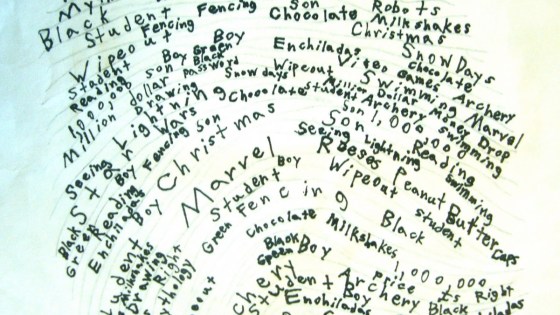 Black Student Fencing Son Robots
Fencing Chocolate Milkshakes
Wipeout Boy Christmas
Student Boy Green Enchiladas Snow Days
Reading son Black Video Games chocolate
1,000,000 dollar password Snow days Wipeout Swimming Archery
Million Drawing Chocolate student Million Dollar Money Drop Marvel
Lightning Archery swimming
Seeing Star Wars son Son 1,000,000 Reading
Boy Fencing Seeing Lightning swimming
Black Reading Boy Christmas Reeses Peanut Butter Cups
Green Enchiladas Marvel Boy Wipeout student
Student Fencing Black
Green Chocolate Milkshakes
Student Drawing Right Black Boy 1,000,000
Milkshakes Green Archery Price Is Right
Mythology Student Boy Black
Archery Enchiladas